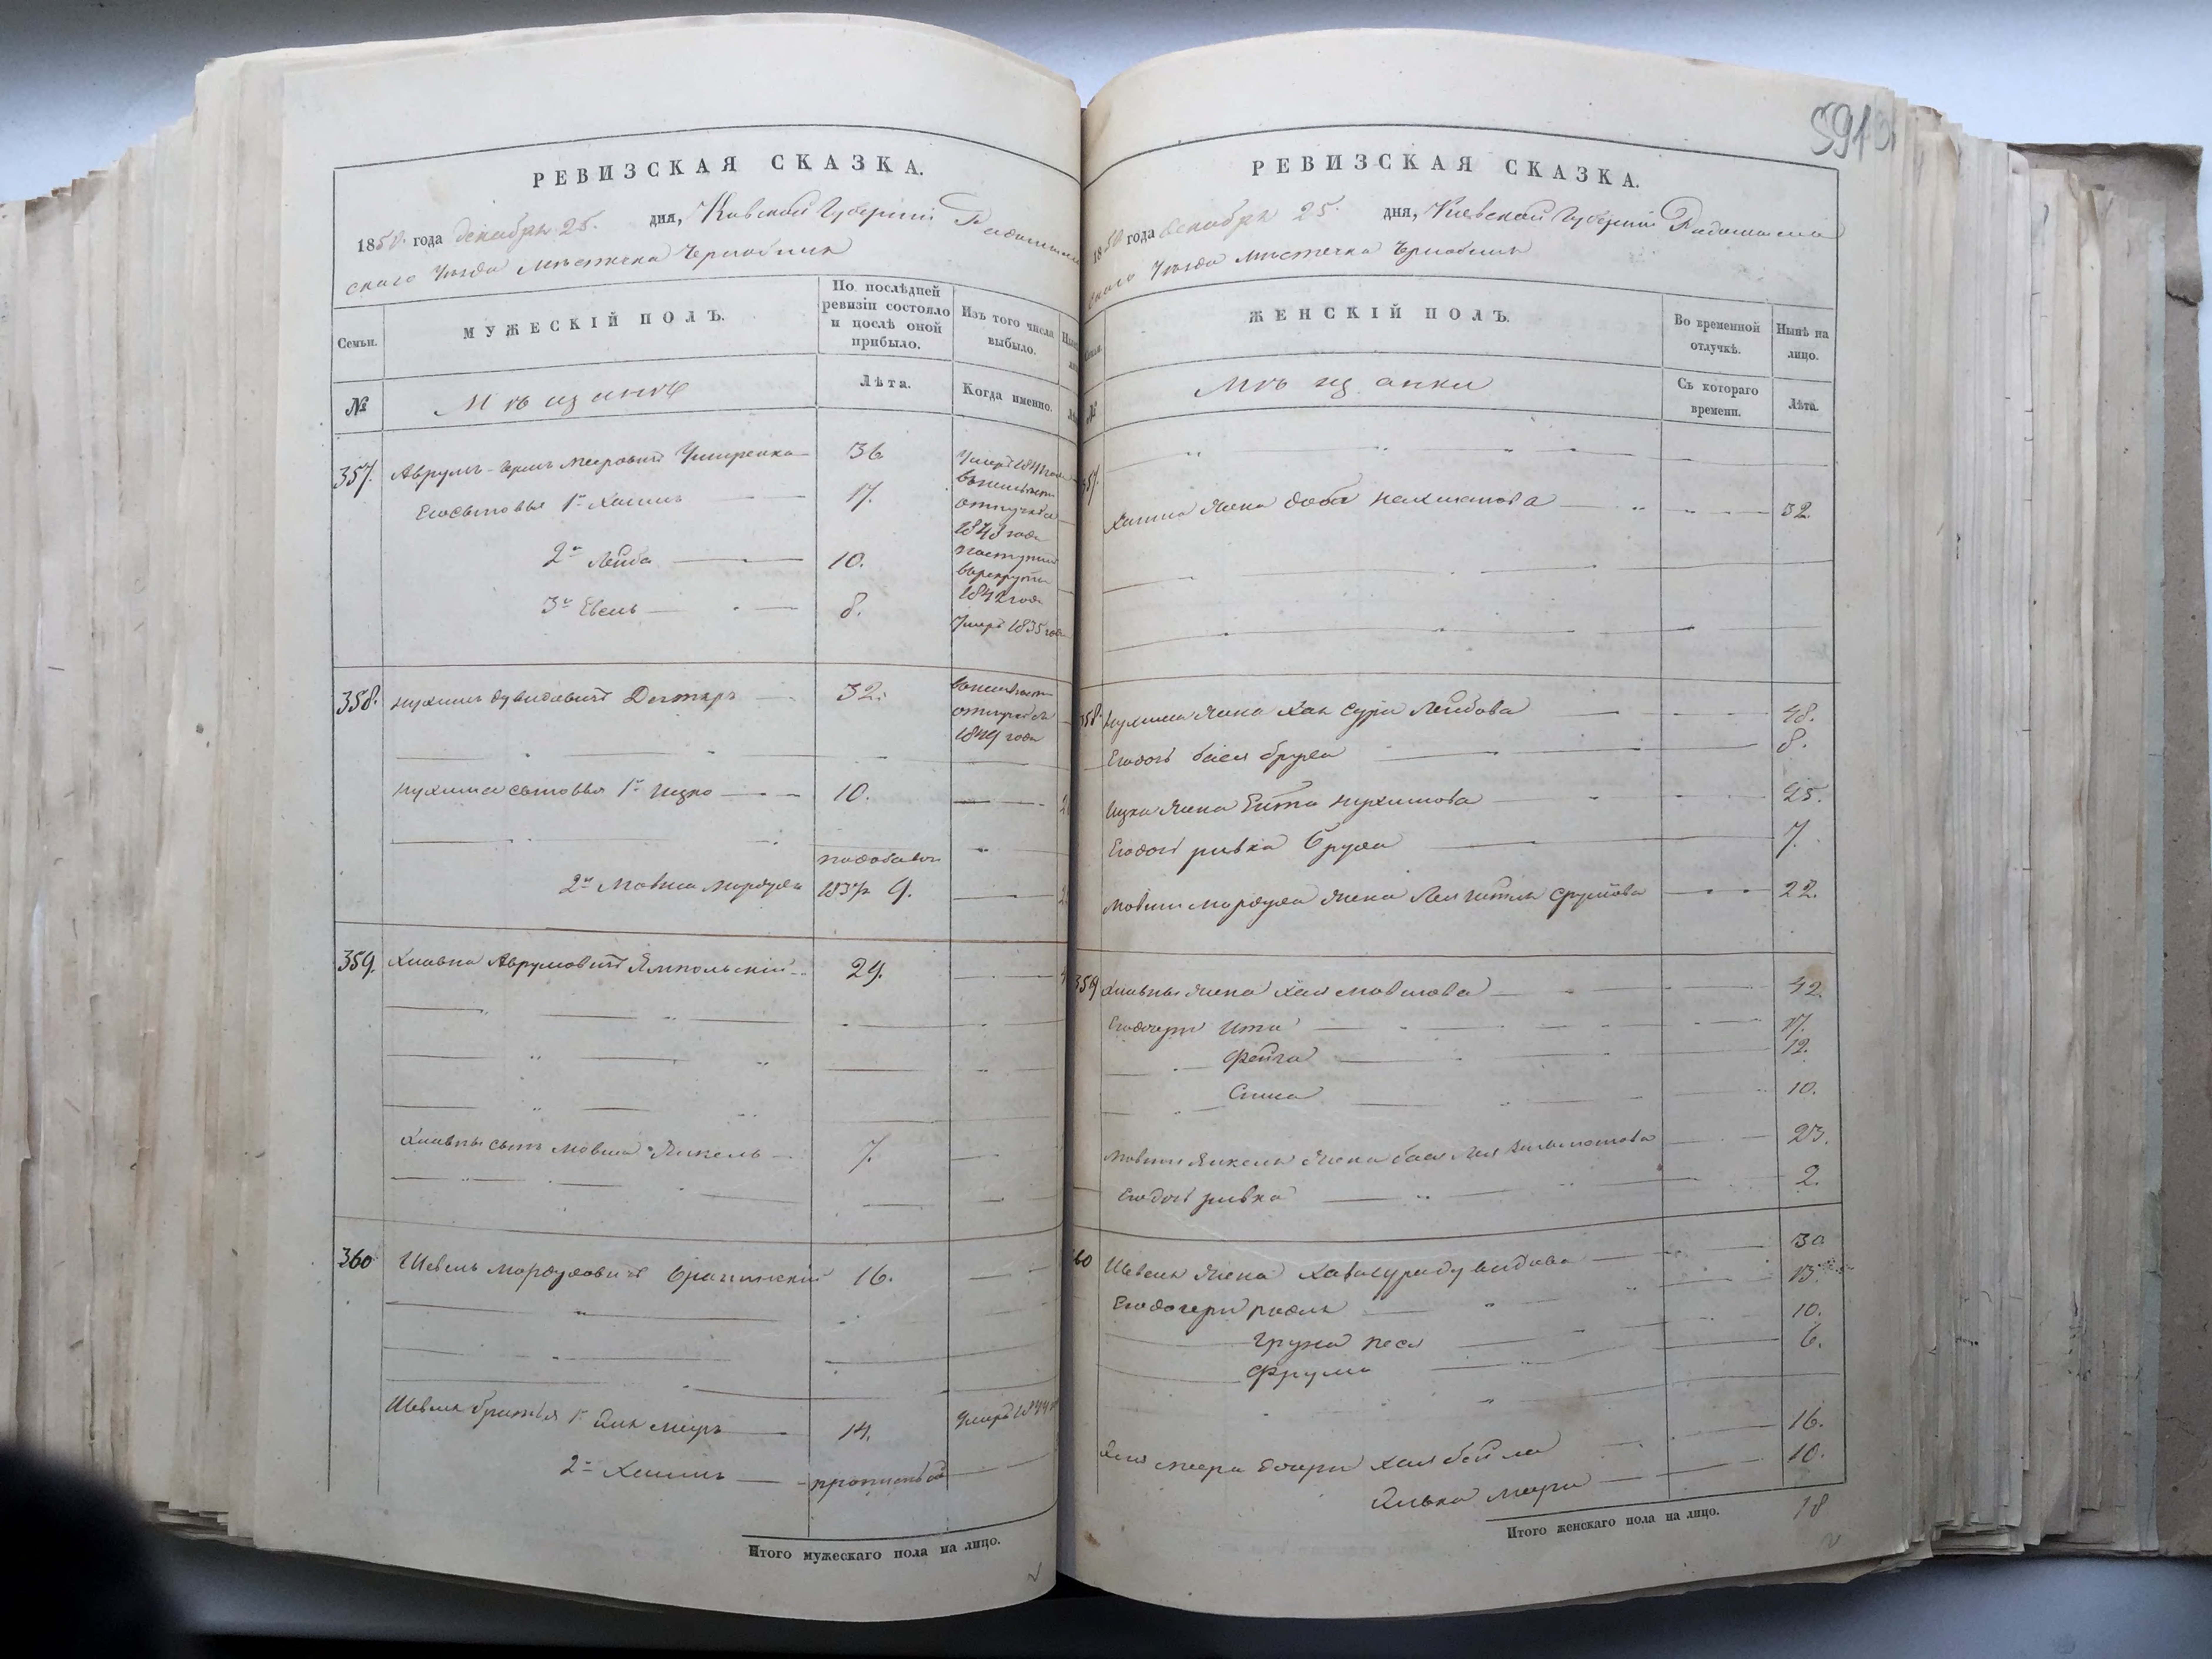 591
РЕВИЗСКАЯ СКАЗКА.
1850 года декабря 25. дня, Киевской Губерніи Радомысль
скаго Уѣзда Мѣстечка Чернобыля
Семьи.
МУЖЕСКІЙ ПОЛЪ.
По послѣдней ревизіи состояло и послѣ оной прибыло.
Изъ того числа выбыло.
№
Мѣщане
Лѣта.
Когда именно.
357. Аврумъ-Герш Меерович 36 Умеръ
Его сыновья 1й Хаимъ 17. отлучкѣ 1848 года
2й Лейба 10. поступилъ в рекруты 1842 года
3й Евель 8. Умеръ 1835 года
358. Нухимъ Дувидовичъ 32. отлучкѣ 1849 года
Нухима сыновья 1й Ицко 10.
2й Мовша Мордухъ 9.
359. Хлавна Аврумовичъ Ямпольскій 29.
Хлавны сынъ Мовша Янкель 7.
360 Шевель Мордуховичъ Брагинскій 16.
Шевеля братья 1й Меиръ 14. Умеръ 1844
2й Хаимъ
Итого мужескаго пола на лицо.
РЕВИЗСКАЯ СКАЗКА.
1850 года декабря 25. дня, Киевской Губерніи Радомысль
скаго Уѣзда Мѣстечка Чернобыля
ЖЕНСКІЙ ПОЛЪ.
Во временной отлучкѣ.
Нынѣ на лицо.
№
Мѣщанки
Съ котораго времени.
Лѣта.
357.
Хаима жена Доба Нахманова 32.
358. Нухима жена Хая Сура Лейбова 48.
Его дочь Бася Бруха 8.
Ицка жена Ента Нухимова 25.
Его дочь Ривка Бруха 7.
Мовши Мордуха жена Лея Гитля Срулева 22.
359 Хлавны жена Хая Мовшова 42.
Его дочери Ита 17.
Фейга 12.
Сима 10.
Мовши Янкеля жена Бася Лея 23.
Его дочь Ривка 2.
360 Шевеля жена Хава Сура Дувидова 30
Его дочери Рахль 13.
Груна Песя 10.
Фрума 6.
Меера дочери Хая Бейла 16.
10.
Итого женскаго пола на лицо. 18